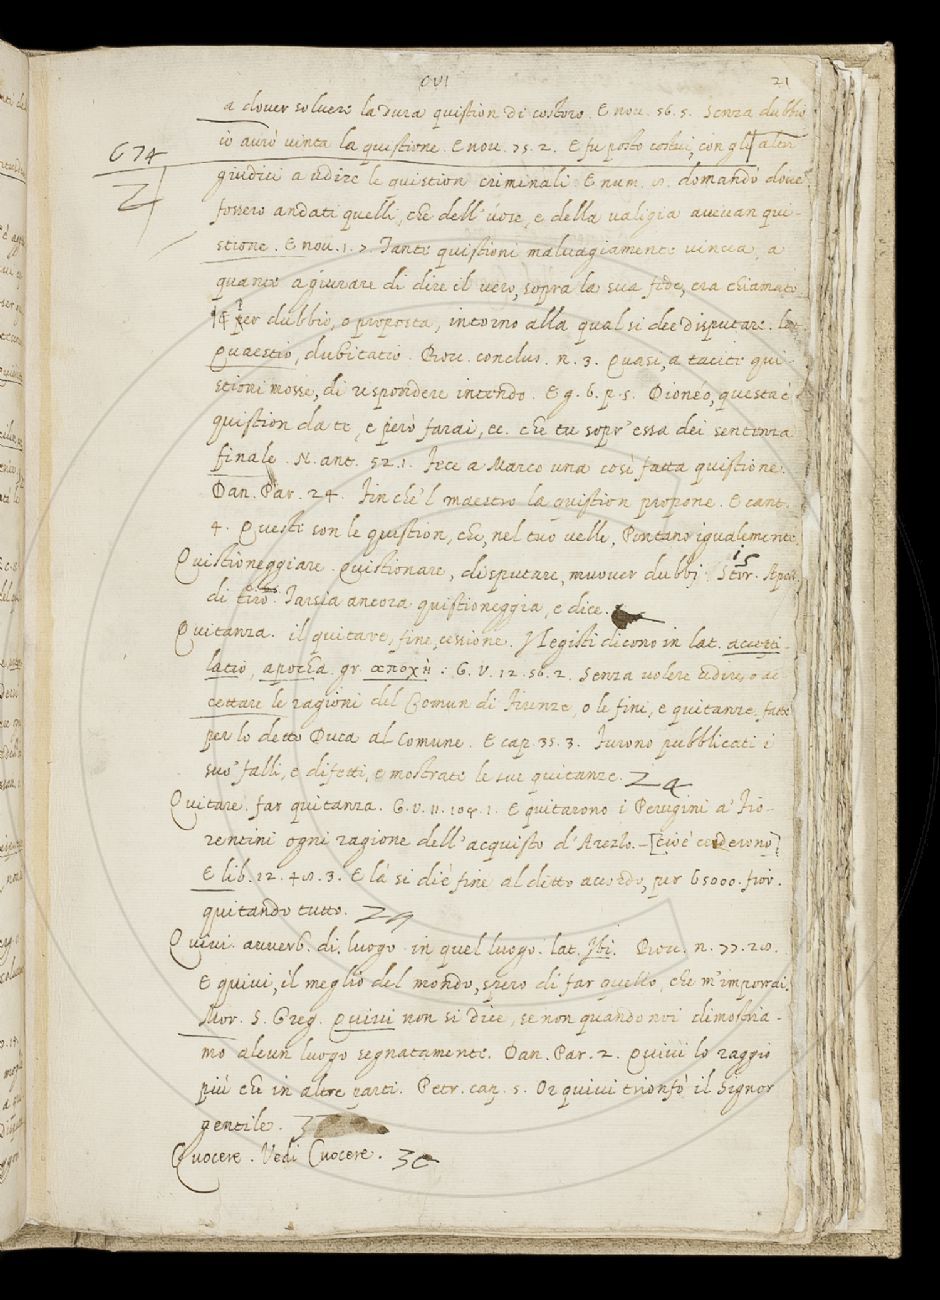 QVI 21
a dover solvere la dura quistion di costoro. E nov. 56. 5. Senza dubbio
io avrò vinta la quistione. E nov. 75. 2. E fu posto costui, con gli altri
674
giudici a udire le quistion criminali E num. domandò dove
2
fossero andati quelli, che dell'uose, e della valigia avevan qui-
stione. E nov. 1. 7. Tante quistioni malvagiamente vincea, a
quante a giurare di dire il vero, sopra la sua fede, era chiamato.
per dubbio, o proposta, intorno alla qual si dee disputare. lat.
Quaestio, dubitatio. Bocc. conclus. n. 3. Quasi, a tacite qui-
stioni mosse, di rispondere intendo. E g. 6. p. 5. Dionéo, questa è
quistion da te, e però farai, ec. che tu sopr'essa dei sentenza
finale. N. ant. 52. 1. Fece a Marco una così fatta quistione.
Dan. Par. 24. Fin che'l maestro la quistion propone. E cant.
4. Questi son le quistion, che, nel tuo velle, Pontano igualemente,
Quistioneggiare. quistionare, disputare, muover dubbj. Stor. Apoll.
15
di tiro. Tarsia ancora quistioneggia, e dice.
Quitanza. il quitare, fine, cessione. I legisti dicono in lat. accetti-
latio, apocha gr. αποχὴ: G. V. 12. 56. 2. Senza volere udire, o ac-
cettare le ragioni del Comun di Firenze, o le fini, e quitanze fatte
per lo detto Duca al Comune. E cap. 35. 3. Furono pubblicati i
suo' falli, e difetti, e mostrate le sue quitanze. 24
Quitare. far quitanza. G. V. 11. 1. E quitarono i Perugini a' Fio-
rentini ogni ragione dell'acquisto d'Arezzo. - [cioè cederono]
E lib. 12. 3. E là si diè fine al detto accordo, per 65000. fior.
quitando tutto. 29
Quivi. avverb. di luogo. in quel luogo. lat. Ibi. Bocc. n. 77.
E quivi, il meglio del mondo, spero di far quello, che m'imporrai.
Mor. S. Greg. Quivi non si dice, se non quando noi dimostria-
mo alcun luogo segnatamente. Dan. Par. 2. Quivi lo raggio
più che in altre parti. Petr. cap. 5. Or quivi trionfò il Signor
gentile.
Quocere. Vedi Cuocere. 30